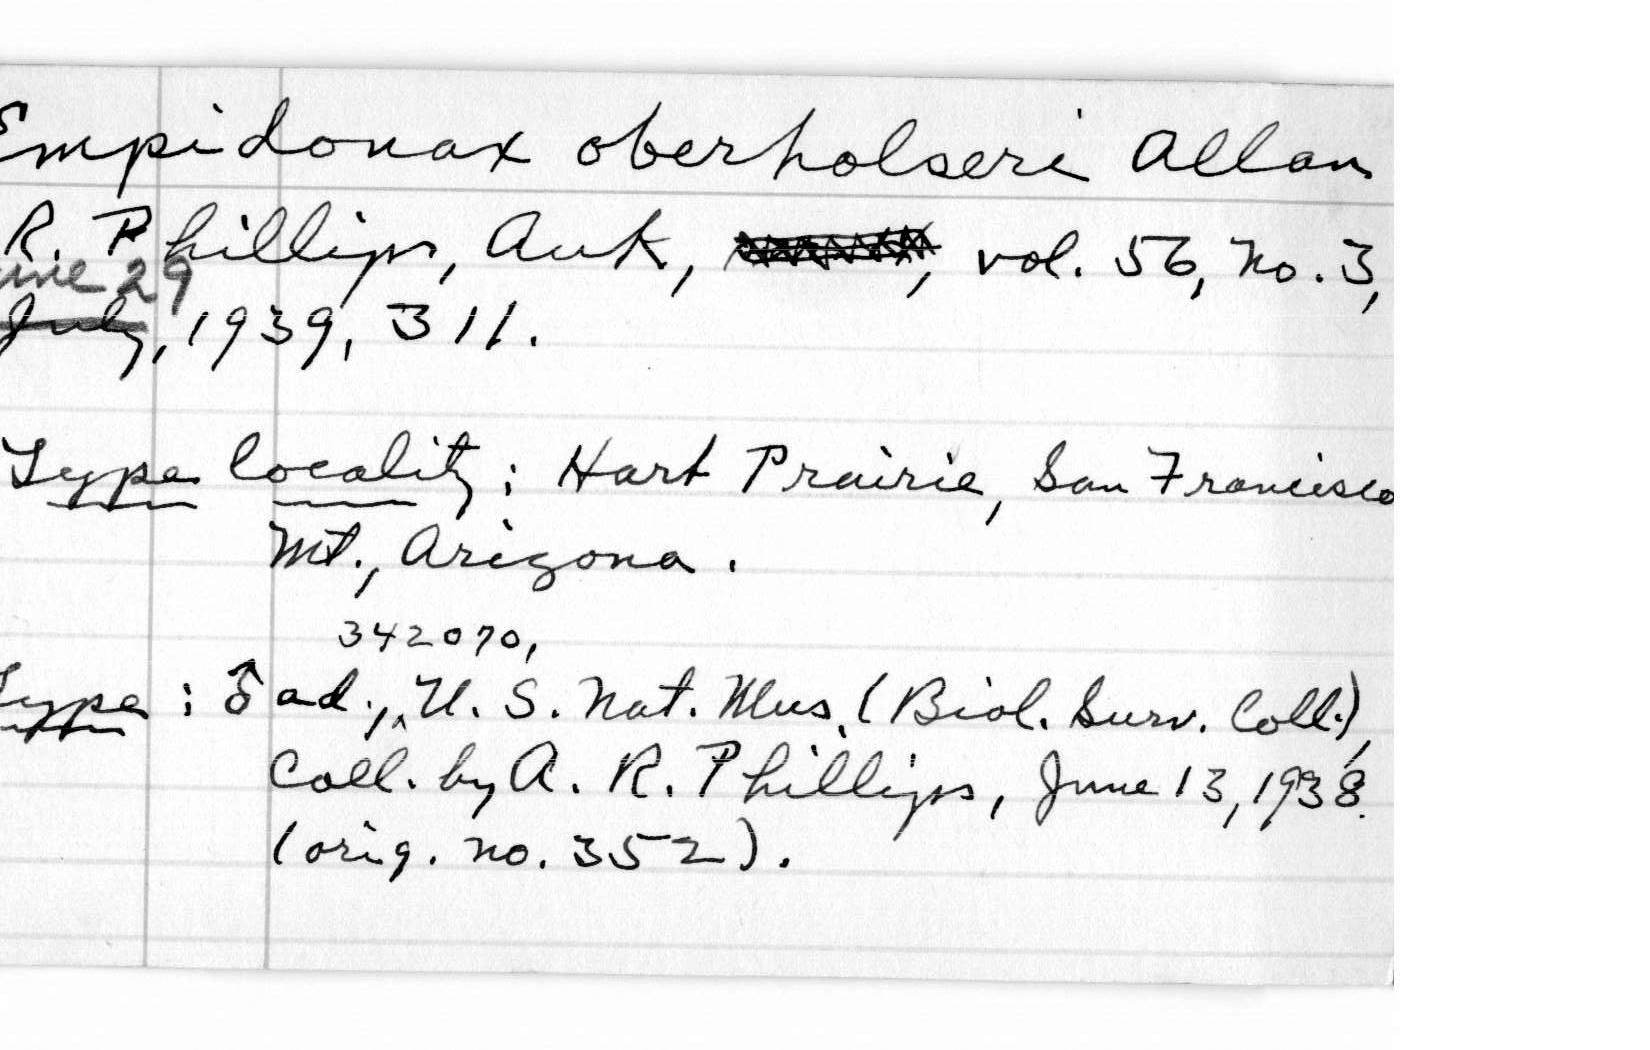 Empidonax oberholseri Allan
R. Phillips, Auk, , vol. 56, no. 3,
une 29
July, 1939, 311.
Type locality : Hart Prairie, San Francisco
Mt., Arizona .
342070,
Type : ♂ ad., U. S. Nat. Mus. (Biol. Surv. Coll.),
Coll. by A. R. Phillips, June 13, 1938.
(orig. no. 352).